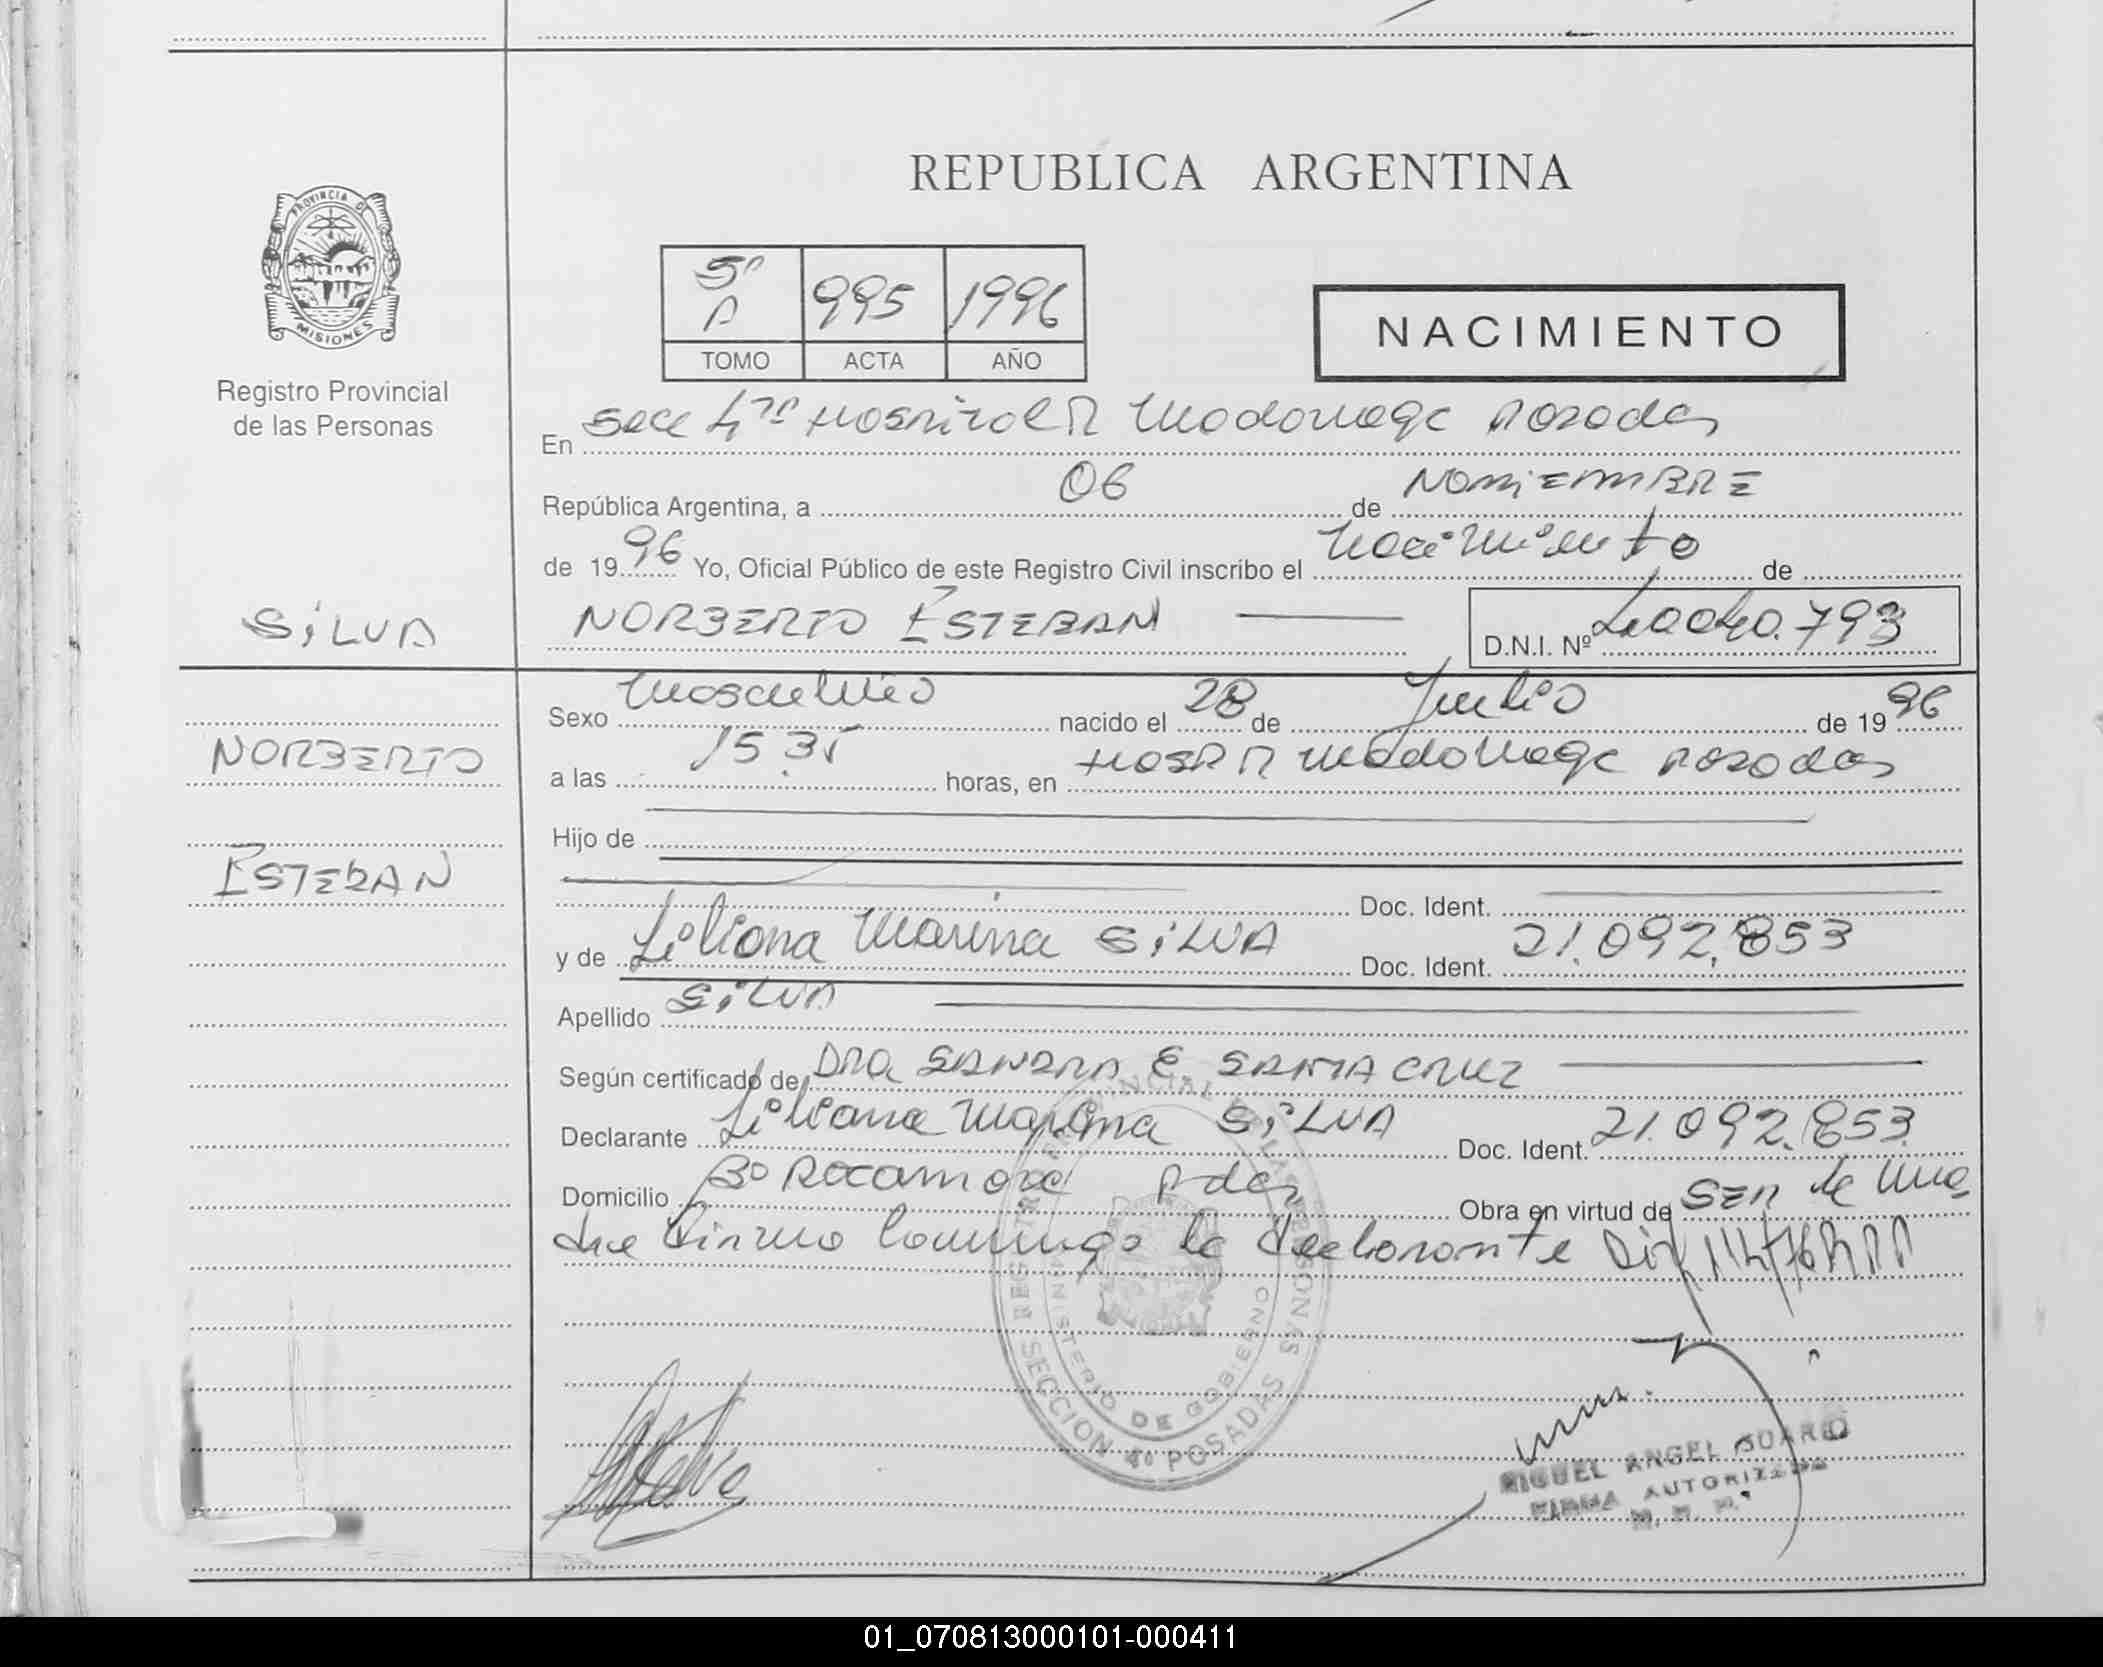 REPUBLICA ARGENTINA
PROVINCIA D
MISIONES
Registro Provincial
de las Personas
5º
A
995
1996
TOMO
ACTA
AÑO
NACIMIENTO
En Secc 4ta Hospital R Madariaga Posadas
República Argentina, a 06 de NOVIEMBRE
de 1996 Yo, Oficial Público de este Registro Civil inscribo el nacimiento de
SILVA
NORBERTO ESTEBAN
D.N.I. Nº 40.040.793
Sexo Masculino nacido el 28 de Julio de 1996
NORBERTO
a las 15.35 horas, en Hosp R Madariaga Posadas
Hijo de
ESTEBAN
Doc. Ident.
y de Liliana Marina SILVA Doc. Ident. 21.092.853
Apellido SILVA
Según certificado de Dra SANDRA E SANTA CRUZ
Declarante Liliana Marina SILVA Doc. Ident. 21.092.853
Domicilio Bº Rocamora Pdas Obra en virtud de SER la Ma
dre Firmo Conmigo la declarante
REGISTRO PROVINCIAL DE LAS PERSONAS
MINISTERIO DE GOBIERNO
SECCION 4º POSADAS
MIGUEL ANGEL
FIRMA AUTORIZADA
01_070813000101-000411